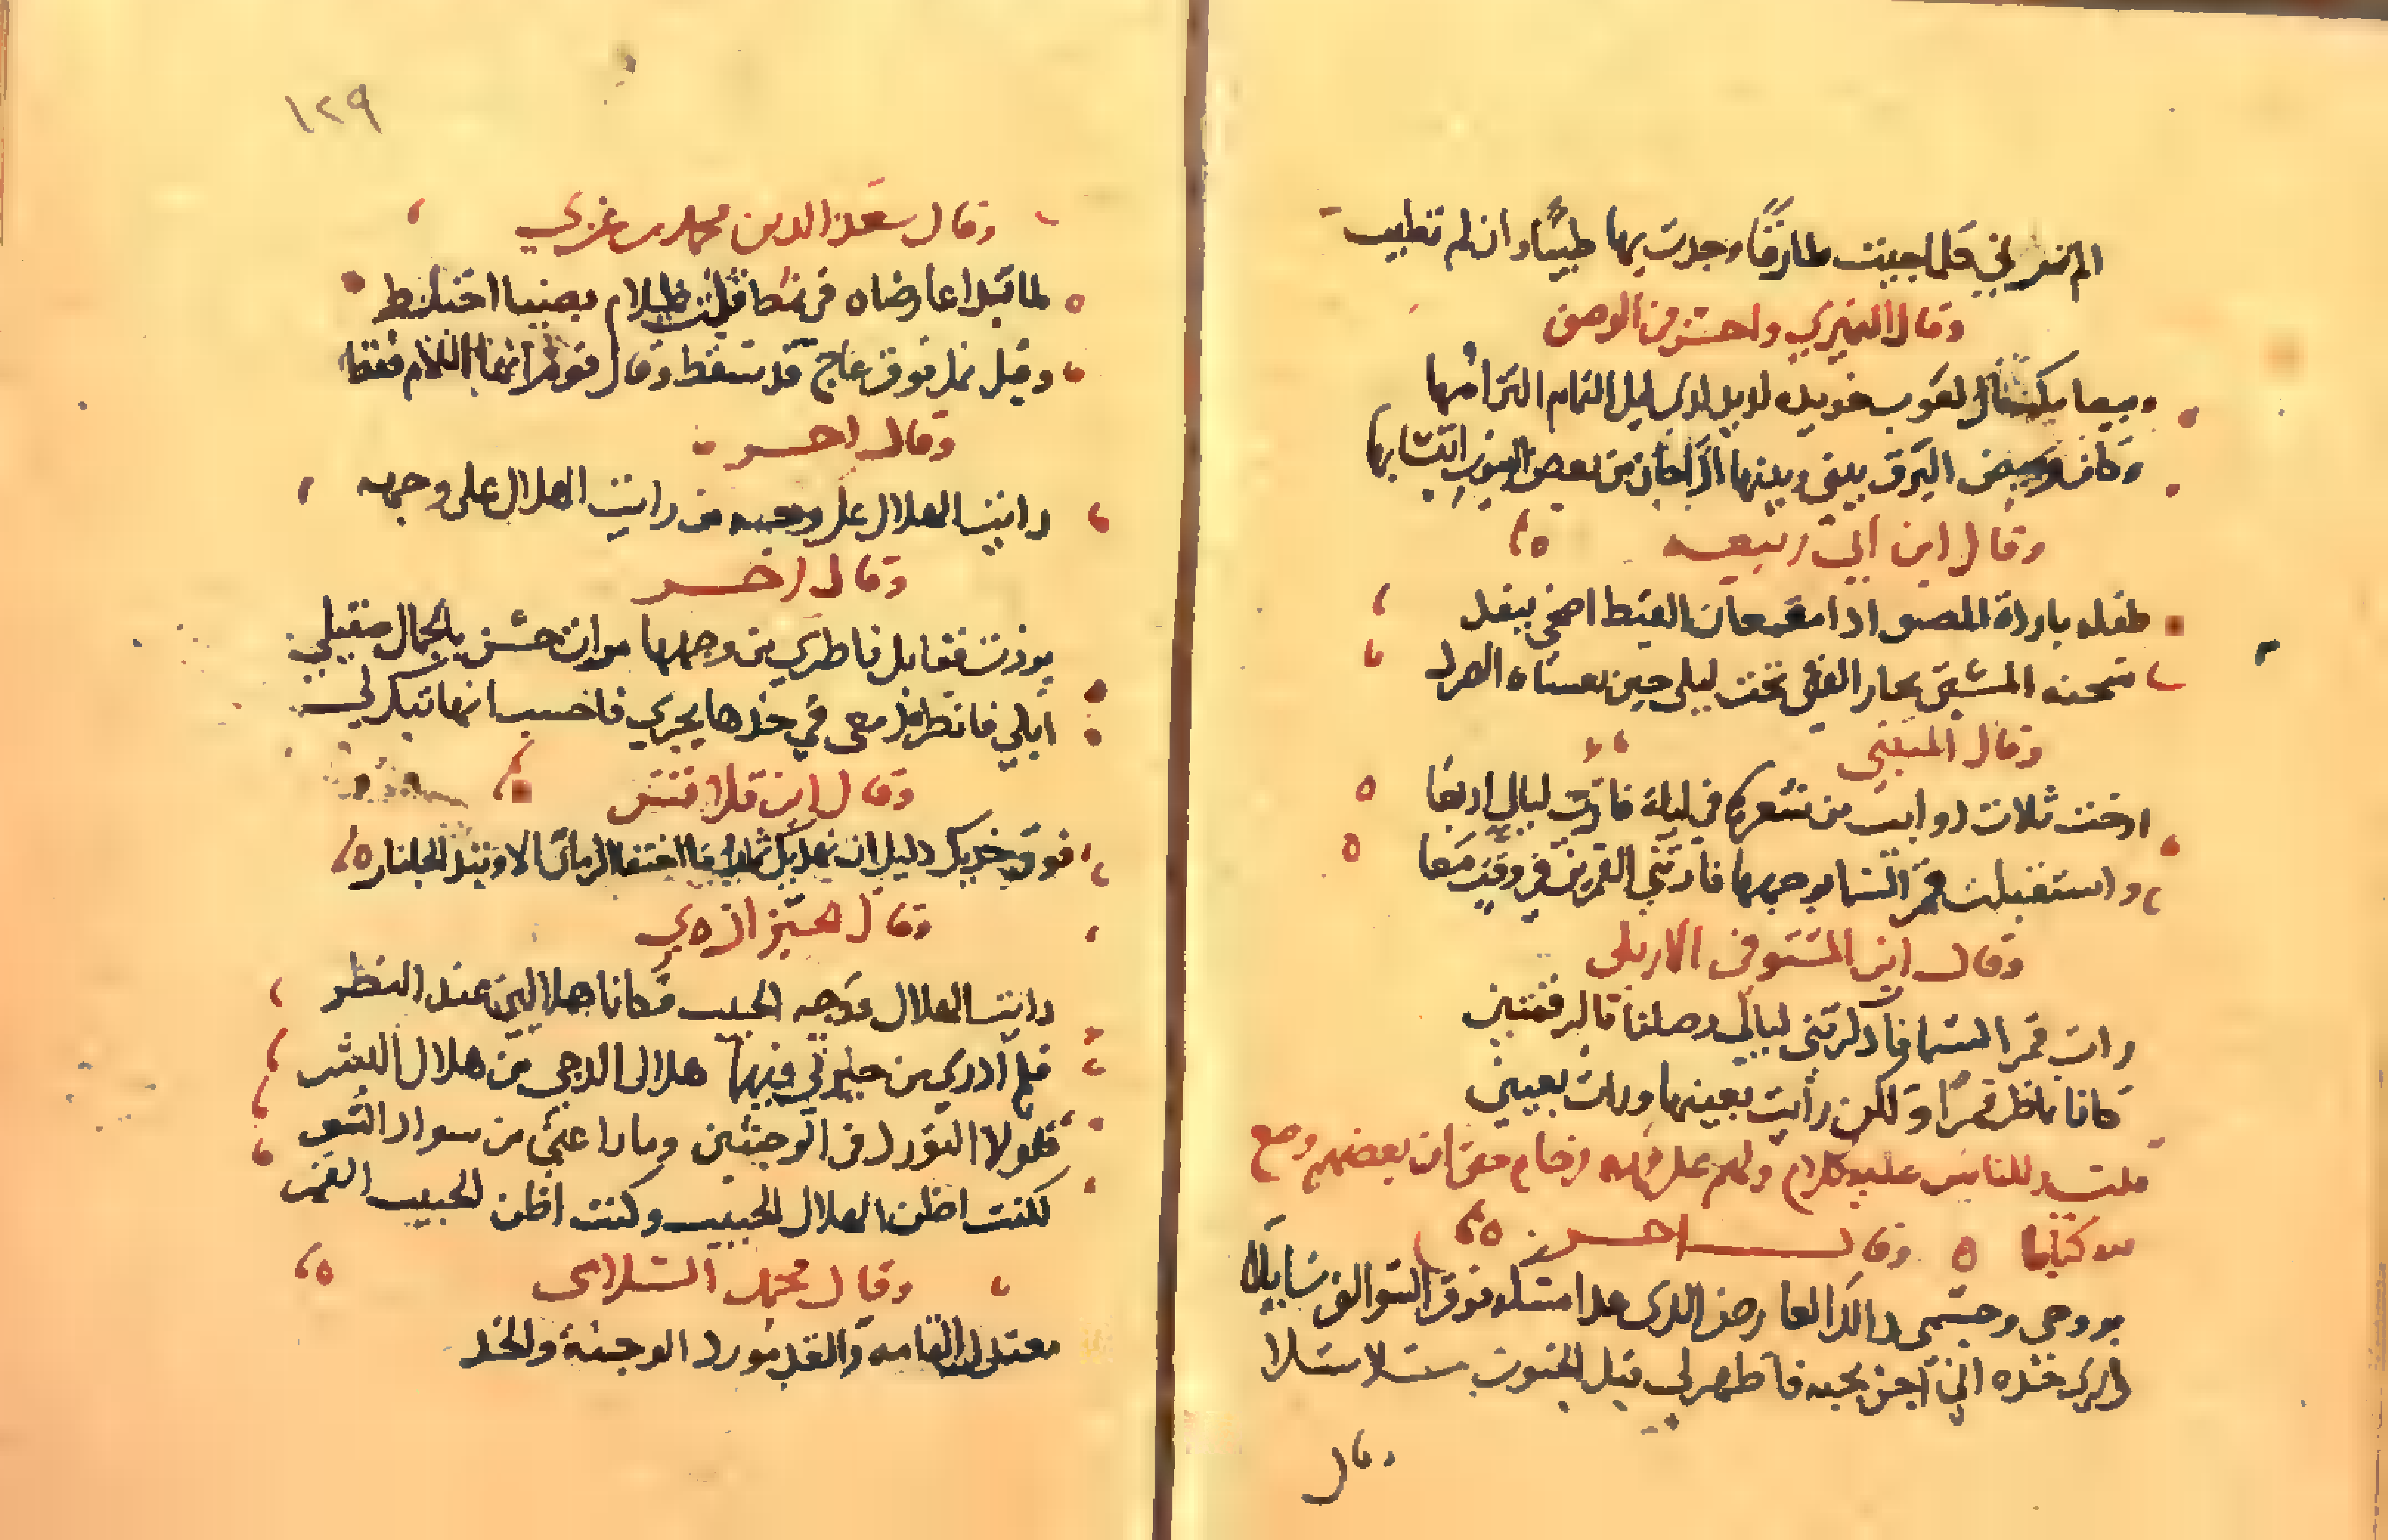 الم ترياني كلما جيت طارقا وجدت بها طيبا وان لم تطيب
وقال النميري واحسن في الوصف
وكان وميض البرق بيني وبينها اذا حان من بعض البيوت ابتسامها
وقال ابن ابي ربيعه
طفله باردة القيظ اذا معمعان القيظ اضحى يتقد
سخنه المشتى لحاف للفتى تحت ليل حين يغشاه الصرد
وقال المتنبي
ارخت ثلاث دوايب من شعرها في ليلة فارت ليالي اربعا
واستقبلت قمر السما بوجهها فارتني القمرين في وقت معا
وقال ابن المستوفي الاربلي
رات قمر السما فاذكرتني ليالي وصلنا بالرقمتين
كلانا ناظر قمرا ولكن رايت بعينها ورات بعيني
قلت وللناس عليه كلام ولهم على فهمه زحام حتى ان بعضهم وضع
فيه كتابا وقال اخر
بروحي وجسمي ذلك العارض الذي غدا مسكه فوق السوالف سايلا
درى خده اني اجن بحبه فاظهر لي قبل الجنون سلاسلا
وقال
١٢٩
وقال سعد الدين محمد بن عربي
لما تبدا عارضاه في نمط قيل ظلام بضيا اختلط
وقيل نمل فوق عاج قد سقط وقال قوم انها اللام فقط
وقال اخر
رايت الهلال على وجهه من رايت الهلال على وجهه
وقال اخر
برزت فقابل ناظري من وجهها مرات حسن بالجمال صقيل
ابكي فانظر ادمعي في خدها يجري فاحسب انها تبكي لي
وقال ابن قلاقس
فوق خديك دليل ان نهديك ثمار ما اختفى الرمان الا وتبدى الجلنار
وقال الخبزارزي
رايت الهلال ووجه الحبيب فكانا هلالين عند النظر
فلم ادري من حيرتي فيهما هلال الدجى من هلال البشر
فلولا التورد في الوجنتين وما راعني من سواد الشعر
لكنت اظن الهلال الحبيب وكنت اظن الحبيب القمر
وقال محمد السلامي
معتدل القامه والقد مورد الوجنة والخد